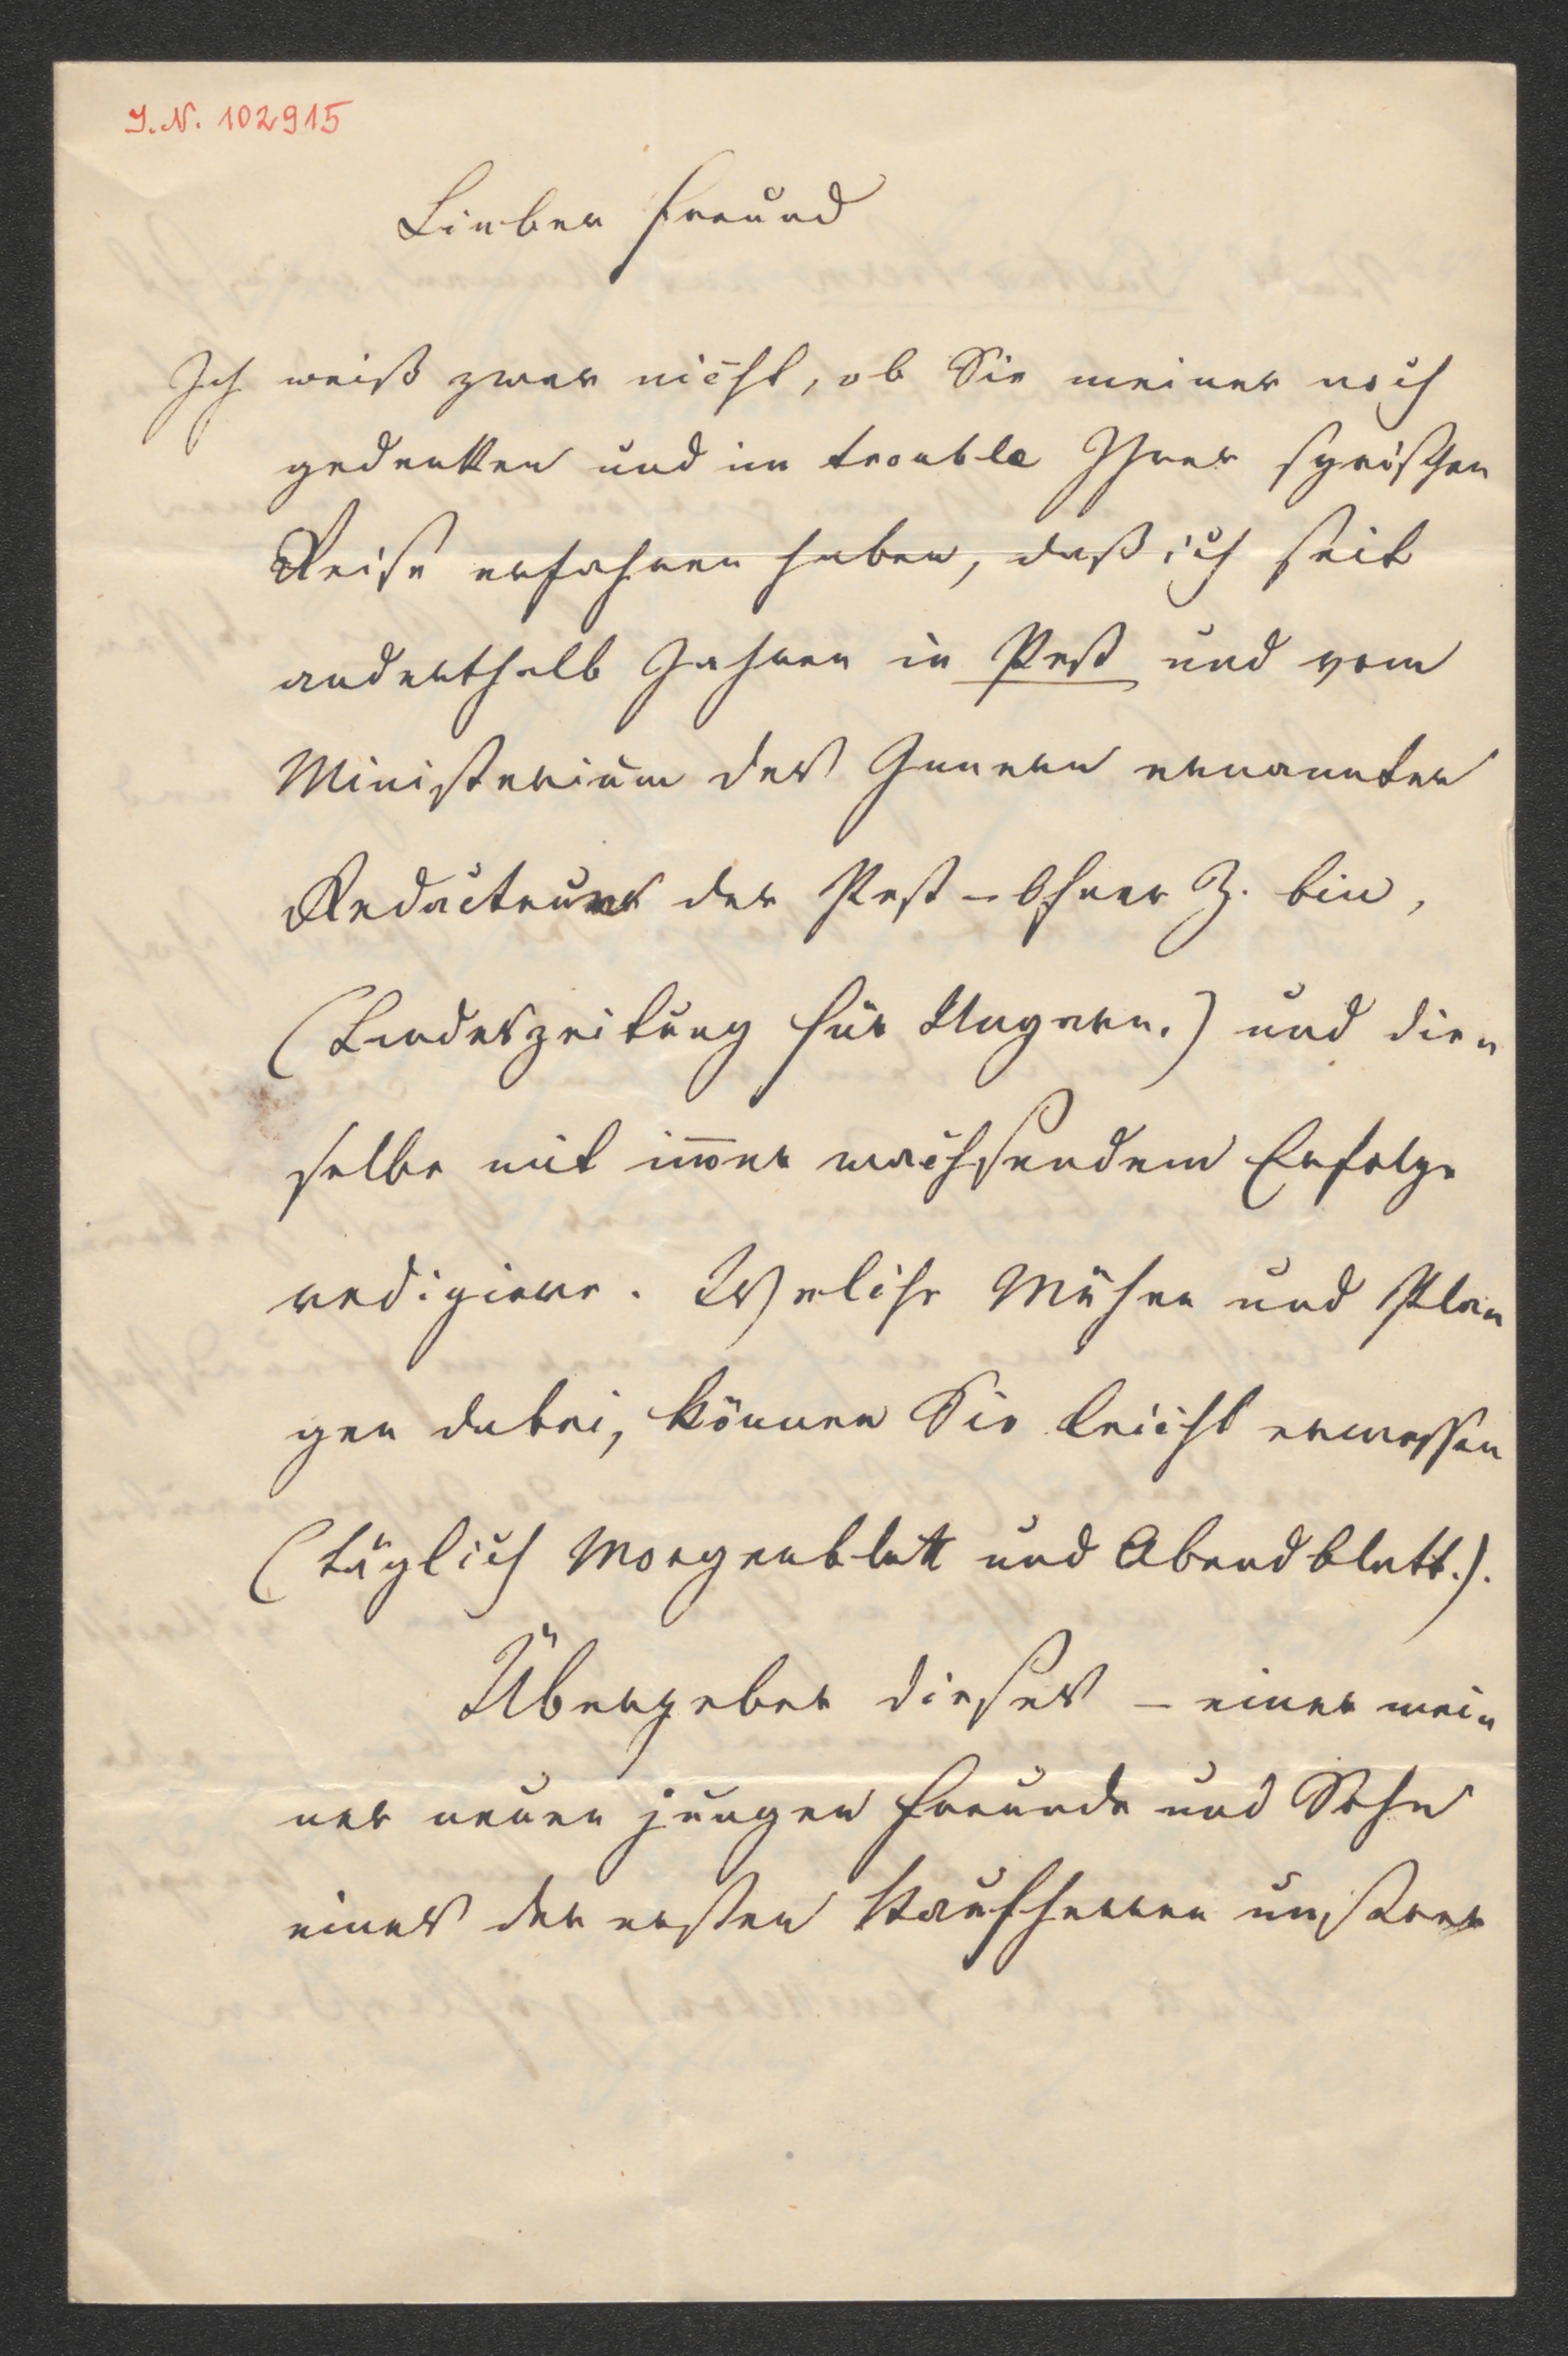 J. N. 102915
Lieber Freund
Ich weiß zwar nicht, ob Sie meiner noch
gedenken und im trouble Ihrer syrischen
Reise erfahren haben, daß ich seit
anderthalb Jahren in Pest und vom
Ministerium des Innern ernannter
Redacteur der Pest-Ofner Z. bin,
(Landeszeitung für Ungarn.) und die-
selbe mit im̅er wachsendem Erfolge
redigiere. Welche Mühen und Pla-
gen dabei, können Sie leicht ermessen
(täglich Morgenblatt und Abendblatt.).
Übergeber dieses – einer mei-
ner neuen jungen Freunde und Sohn
eines der ersten Kaufherren unserer